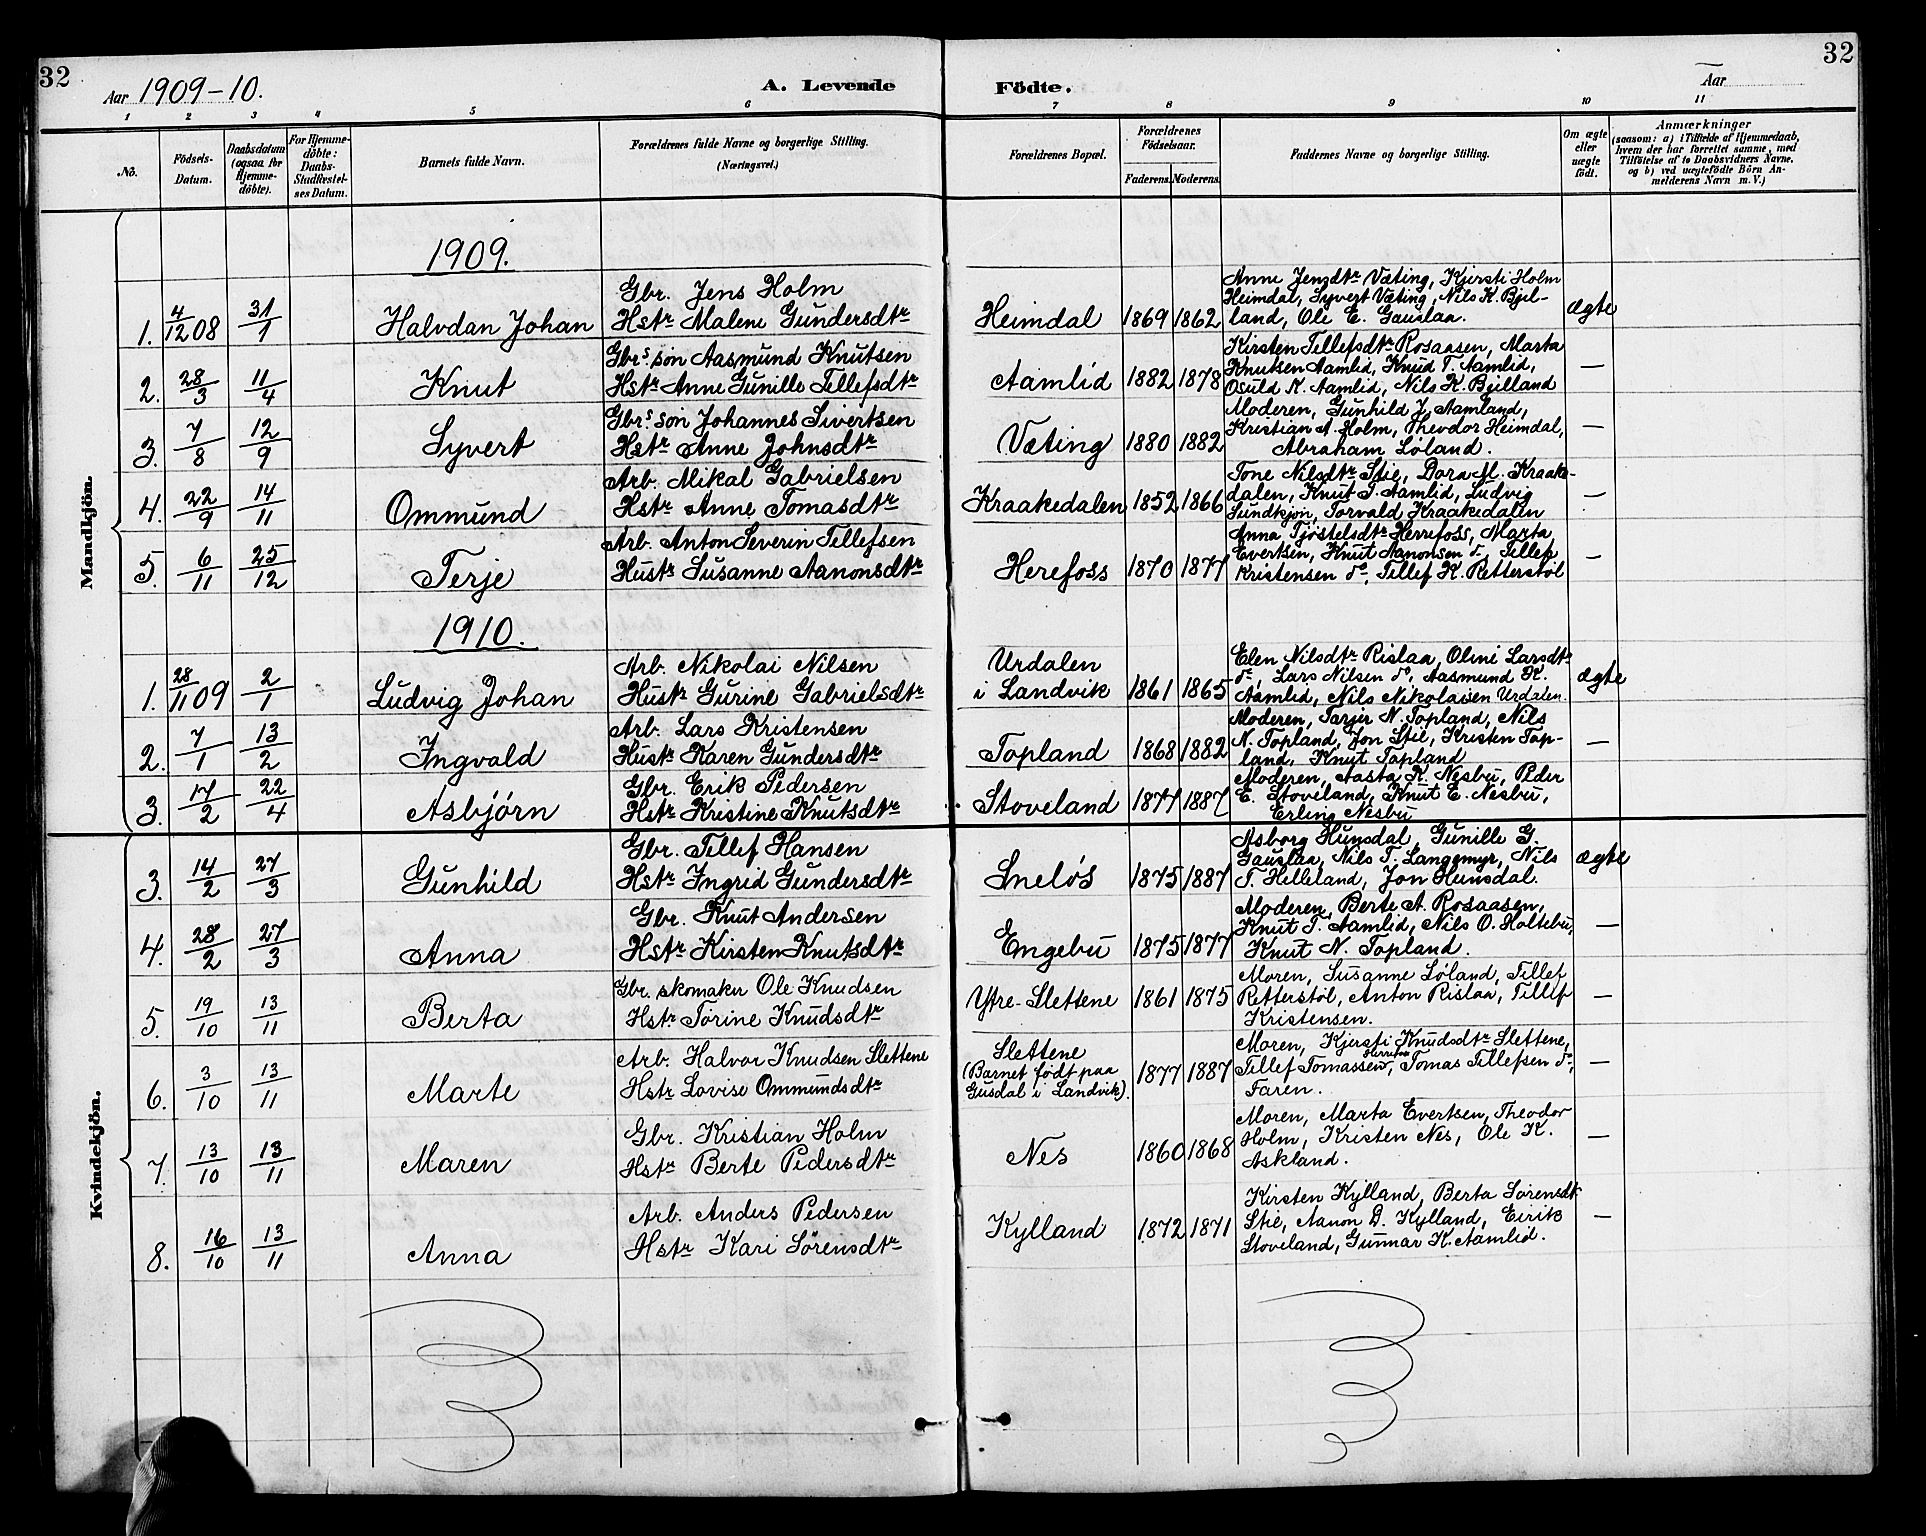 32
32
Aar 1909-10.
A. Levende Födte.
Aar
1 2 3 4 5 6 7 8 9 10 11
No.
Födsels-Datum.
Daabsdatum (ogsaa for Hjemme-döbte).
For Hjemme-döbte: Daabs-Stadfæstel-ses Datum.
Barnets fulde Navn.
Forældrenes fulde Navne og borgerlige Stilling. (Næringsvei.)
Forældrenes Bopæl.
Forældrenes Födselsaar.
Faderens. Moderens.
Faddernes Navne og borgerlige Stilling.
Om ægte eller uægte födt.
Anmærkninger
(saasom: a) i Tilfælde af Hjemmedaab,
hvem der har forrettet samme, med
Tilföielse af to Daabsvidners Navne,
og b) ved uægtefödte Börn An-
melderens Navn m. V.)
Mandkjön.
1909.
1. 4/12 08 31/1 Halvdan Johan
Gbr. Jens Holm
Hstr Malene Gundersdtr
Heimdal 1869 1862
Anne Jensdtr Væting, Kjersti Holm
Heimdal, Syvert Væting, Nils K. Bjel-
land, Ole E. Gauslaa.
Ægte
2. 28/3 11/4 Knut
Gbrs søn Aasmund Knutsen
Hstr Anne Gunille Tellefsdtr
Aamlid 1882 1878
Kirsten Tellefsdtr Rosaasen, Marta
Knutsen Aamlid, Knud T. Aamlid,
Osuld K. Aamlid, Nils K. Bjelland
—
3. 7/8 12/9 Syvert
Gbrs søn Johannes Sivertsen
Hstr Anne Johnsdtr
Væting 1880 1882
Moderen, Gunhild J. Aamland,
Kristian A. Holm, Theodor Heimdal,
Abraham Løland.
—
4. 22/9 14/11 Ommund
Arb. Mikal Gabrielsen
Hstr Anne Tomasdtr
Kraakedalen 1852 1866
Tone Nilsdtr Stie, Dora M. Kraake-
dalen, Knut T. Aamlid, Ludvig
Sundkjøn, Torvald Kraakedalen
—
5. 6/11 25/12 Terje
Arb. Anton Severin Tellefsen
Hustr Susanne Aanonsdtr
Herefoss 1870 1877
Anna Tjøstelsdtr Herrefoss, Marta
Evertsen, Knut Aanonsen do, Tellef
Kristensen do, Tellef K. Retterstøl
—
1910.
1. 28/11 09 2/1 Ludvig Johan
Arb. Nikolai Nilsen
Hustr Gurine Gabrielsdtr
Urdalen
i Landvik 1861 1865
Elen Nilsdtr Rislaa, Olini Larsdtr
do, Lars Nilsen do, Aasmund K.
Aamlid, Nils Nikolaisen Urdalen.
Ægte
2. 7/1 13/2 Ingvald
Arb. Lars Kristensen
Hustr Karen Gundersdtr
Topland 1868 1882
Moderen, Tarjer N. Topland, Nils
N. Topland, Jon Stie, Kristen Top-
land, Knut Topland
—
3. 17/2 22/4 Asbjørn
Gbr. Erik Pedersen
Hstr Kristine Knutsdtr
Stoveland 1877 1887
Moderen, Aasta K. Nesbu, Peder
E. Stoveland, Knut E. Nesbu,
Erling Nesbu
Kvindekjön.
3. 14/2 27/3 Gunhild
Gbr. Tellef Hansen
Hstr Ingrid Gundersdtr
Sneløs 1875 1887
Asborg Hunsdal, Gunille G.
Gauslaa, Nils T. Langemyr, Nils
T. Helleland, Jon Hunsdal.
Ægte
4. 28/2 27/3 Anna
Gbr. Knut Andersen
Hstr Kirsten Knutsdtr
Engebu 1875 1877
Moderen, Berte A. Rosaasen,
Knut T. Aamlid, Nils O. Holtebu,
Knut N. Topland.
—
5. 19/10 13/11 Berta
Gbr. skomaker Ole Knudsen
Hstr Torine Knudsdtr
Ytre-Slettene 1861 1875
Moren, Susanne Løland, Tellef
Retterstøl, Anton Rislaa, Tellef
Kristensen.
—
6. 3/10 13/11 Marte
Arb. Halvor Knudsen Slettene
Hstr Lovise Ommundsdtr
Slettene
(Barnet født paa
Gusdal i Landvik). 1877 1887
Moren, Kjersti Knudsdtr Slettene,
Tellef Tomassen, Tomas Tellefsen do,
Faren.
—
7. 13/10 13/11 Maren
Gbr. Kristian Holm
Hstr Berte Pedersdtr
Nes 1860 1868
Moren, Marta Evertsen, Theodor
Holm, Kristen Nes, Ole K.
Askland.
—
8. 16/10 13/11 Anna
Arb. Anders Pedersen
Hstr Kari Sörensdtr
Kylland 1872 1871
Kirsten Kylland, Berta Sørensdtr
Stie, Aanon D. Kylland, Eirik
Stoveland, Gunnar K. Aamlid.
—